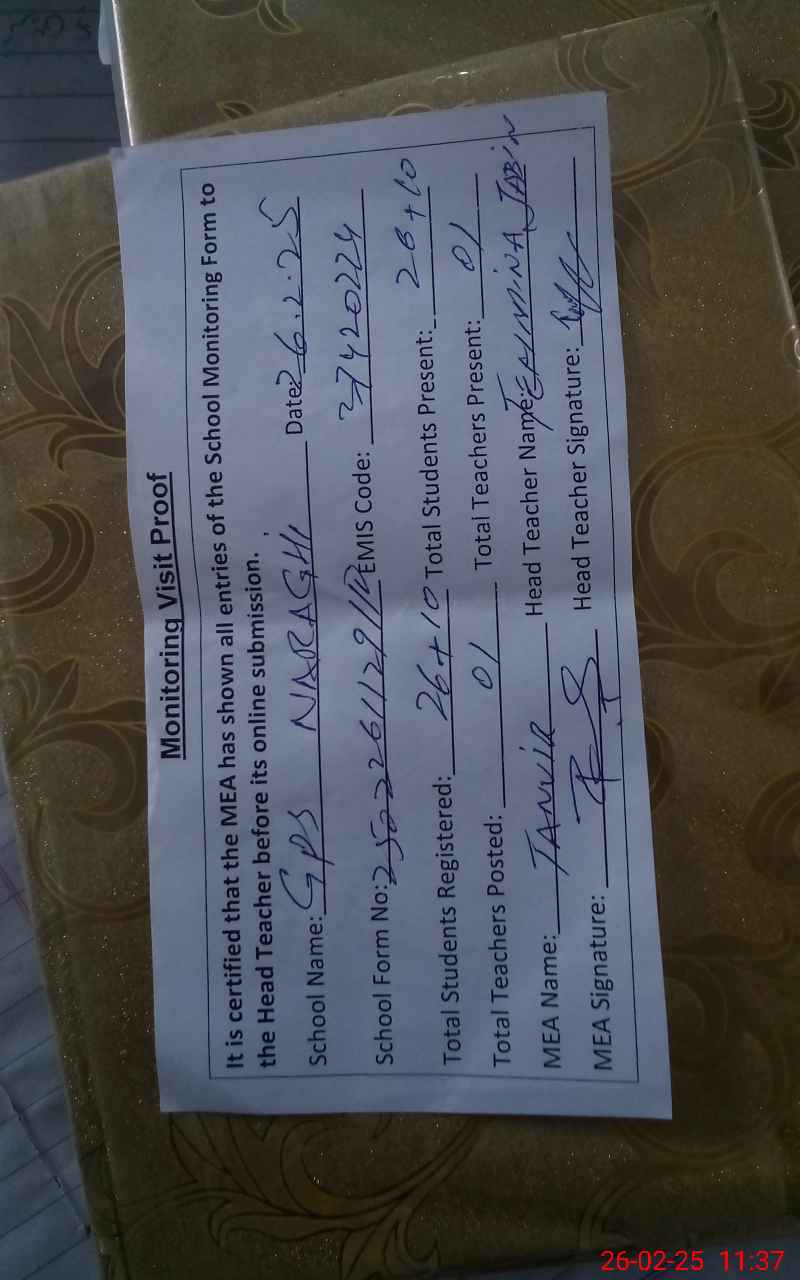 Monitoring Visit Proof
It is certified that the MEA has shown all entries of the School Monitoring Form to
the Head Teacher before its online submission.
School Name: GPS NARAGHI Date: 26.2.25
School Form No: EMIS Code: 37420224
Total Students Registered: 26+10 Total Students Present: 26+10
Total Teachers Posted: 01 Total Teachers Present: 01
MEA Name: TANVIR Head Teacher Name: JABIN
MEA Signature: Head Teacher Signature:
26-02-25 11:37